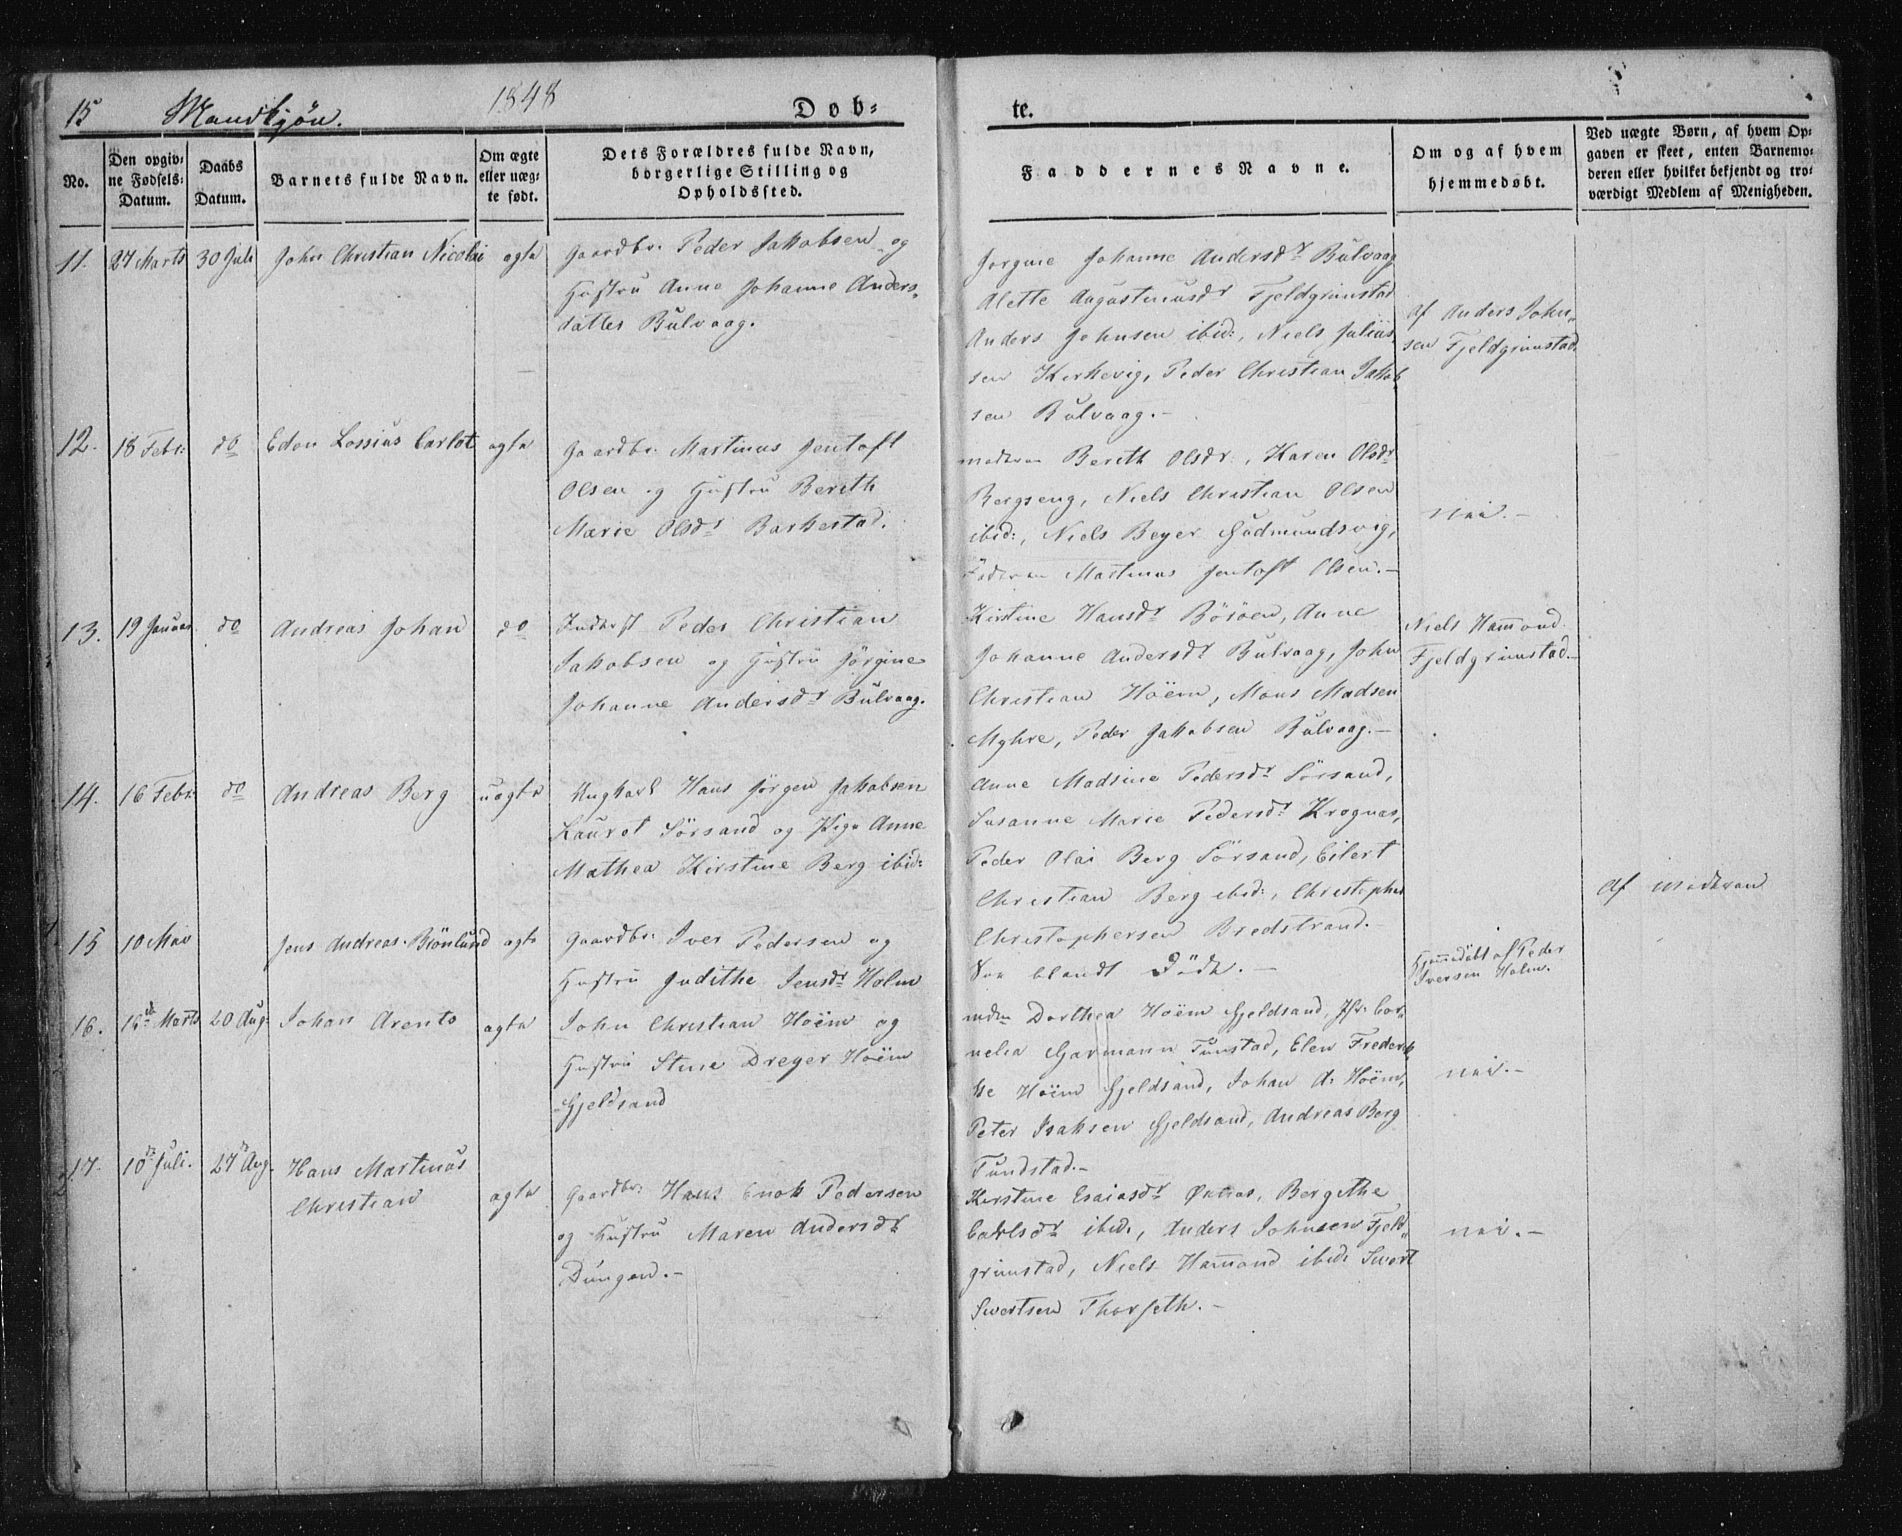 15 Mandkjøn. 1848 Døb-
te.
No.
Den opgiv-
ne Fødsels-
Datum.
Daabs
Datum.
Barnets fulde Navn.
Om ægte
eller uæg-
te født.
Dets Forældres fulde Navn,
borgerlige Stilling og
Opholdssted.
Faddernes Navne.
Om og af hvem
hjemmedøbt.
Ved uægte Børn, af hvem Op-
gaven er skeet, enten Barnemo-
deren eller hvilket bekjendt og tro-
værdigt Medlem af Menigheden.
11. 27 Marts 30 Juli John Christian Nicolai ægte
Gaardbr: Peder Jakobsen og
Hustru Anne Johanne Anders-
datter Bulvaag.
Jørgine Johanne Andersdr Bulvaag
Alette Augustinusdr Fjeldgrimstad
Anders Johnsen ibid:, Niels Julius
sen Kirkevig, Peder Christian Jakob
sen Bulvaag.-
Af Anders John-
sen Fjeldgrimstad.
12. 18 Febr: do Edon Lossius Carlot ægte
Gaardbr: Martinus Jentoft
Olsen og Hustru Berith
Marie Olsdr Barkestad.
Moderen Berith Olsdr., Karen Olsdr
Bergseng, Niels Christian Olsen
ibid:, Niels Beyer Gudmundsvig,
Faderen Martinus Jentoft Olsen.-
nei.-
13. 19 Januar do Andreas Johan do
Inderst Peder Christian
Jakobsen og Hustru Jørgine
Johanne Andersdr Bulvaag.
Kirstine Hansdr Bösöen, Anne
Johanne Andersdr Bulvaag, John
Christian Höem, Mons Madsen
Myhre, Peder Jakobsen Bulvaag.-
Niels Hamond
Fjeldgrimstad.-
14. 16 Febr do Andreas Berg uægte
Ungkarl Hans Jørgen Jakobsen
Lauret Sörsand og Pige Anne
Mathea Kirstine Berg ibid:
Anne Madsine Pedersdr Sörsand,
Susanne Marie Pedersdr Krognæs,
Peder Olai Berg Sörsand, Eilert
Christian Berg ibid:, Christopher
Christophersen Bredstrand.-
Af Moderen
15 10 Mai Jens Andreas Brönlund ægte
Gaardbr: Iver Pedersen og
Hustru Judithe Jensdr Holm
See blandt Döde.-
Hjemmedöbt af Peder
Iversen Holm.
16. 16de Marts 20 Aug. Johan Arento ægte
John Christian Höem og
Hustru Stine Dreyer Höem
Gjeldsand
Mdm Dorthea Höem Gjeldsand, Jfr: Cor-
nelia Garmann Tunstad, Elen Frederik
ke Höem Gjeldsand, Johan A. Höem,
Peter Isaksen Gjeldsand, Andreas Berg
Tundstad.-
nei.-
17. 10de Juli. 27de Aug. Hans Martinus
Christian ægte
Gaardbr: Hans Enok Pedersen
og Hustru Maren Andersdr
Dungan.-
Kirstine Esaiasdr, Bergithe
Carlsdr ibid:, Anders Johnsen Fjeld-
grimstad, Niels Hamond ibid: Sivert
Sivertsen Thorseth.-
nei.-